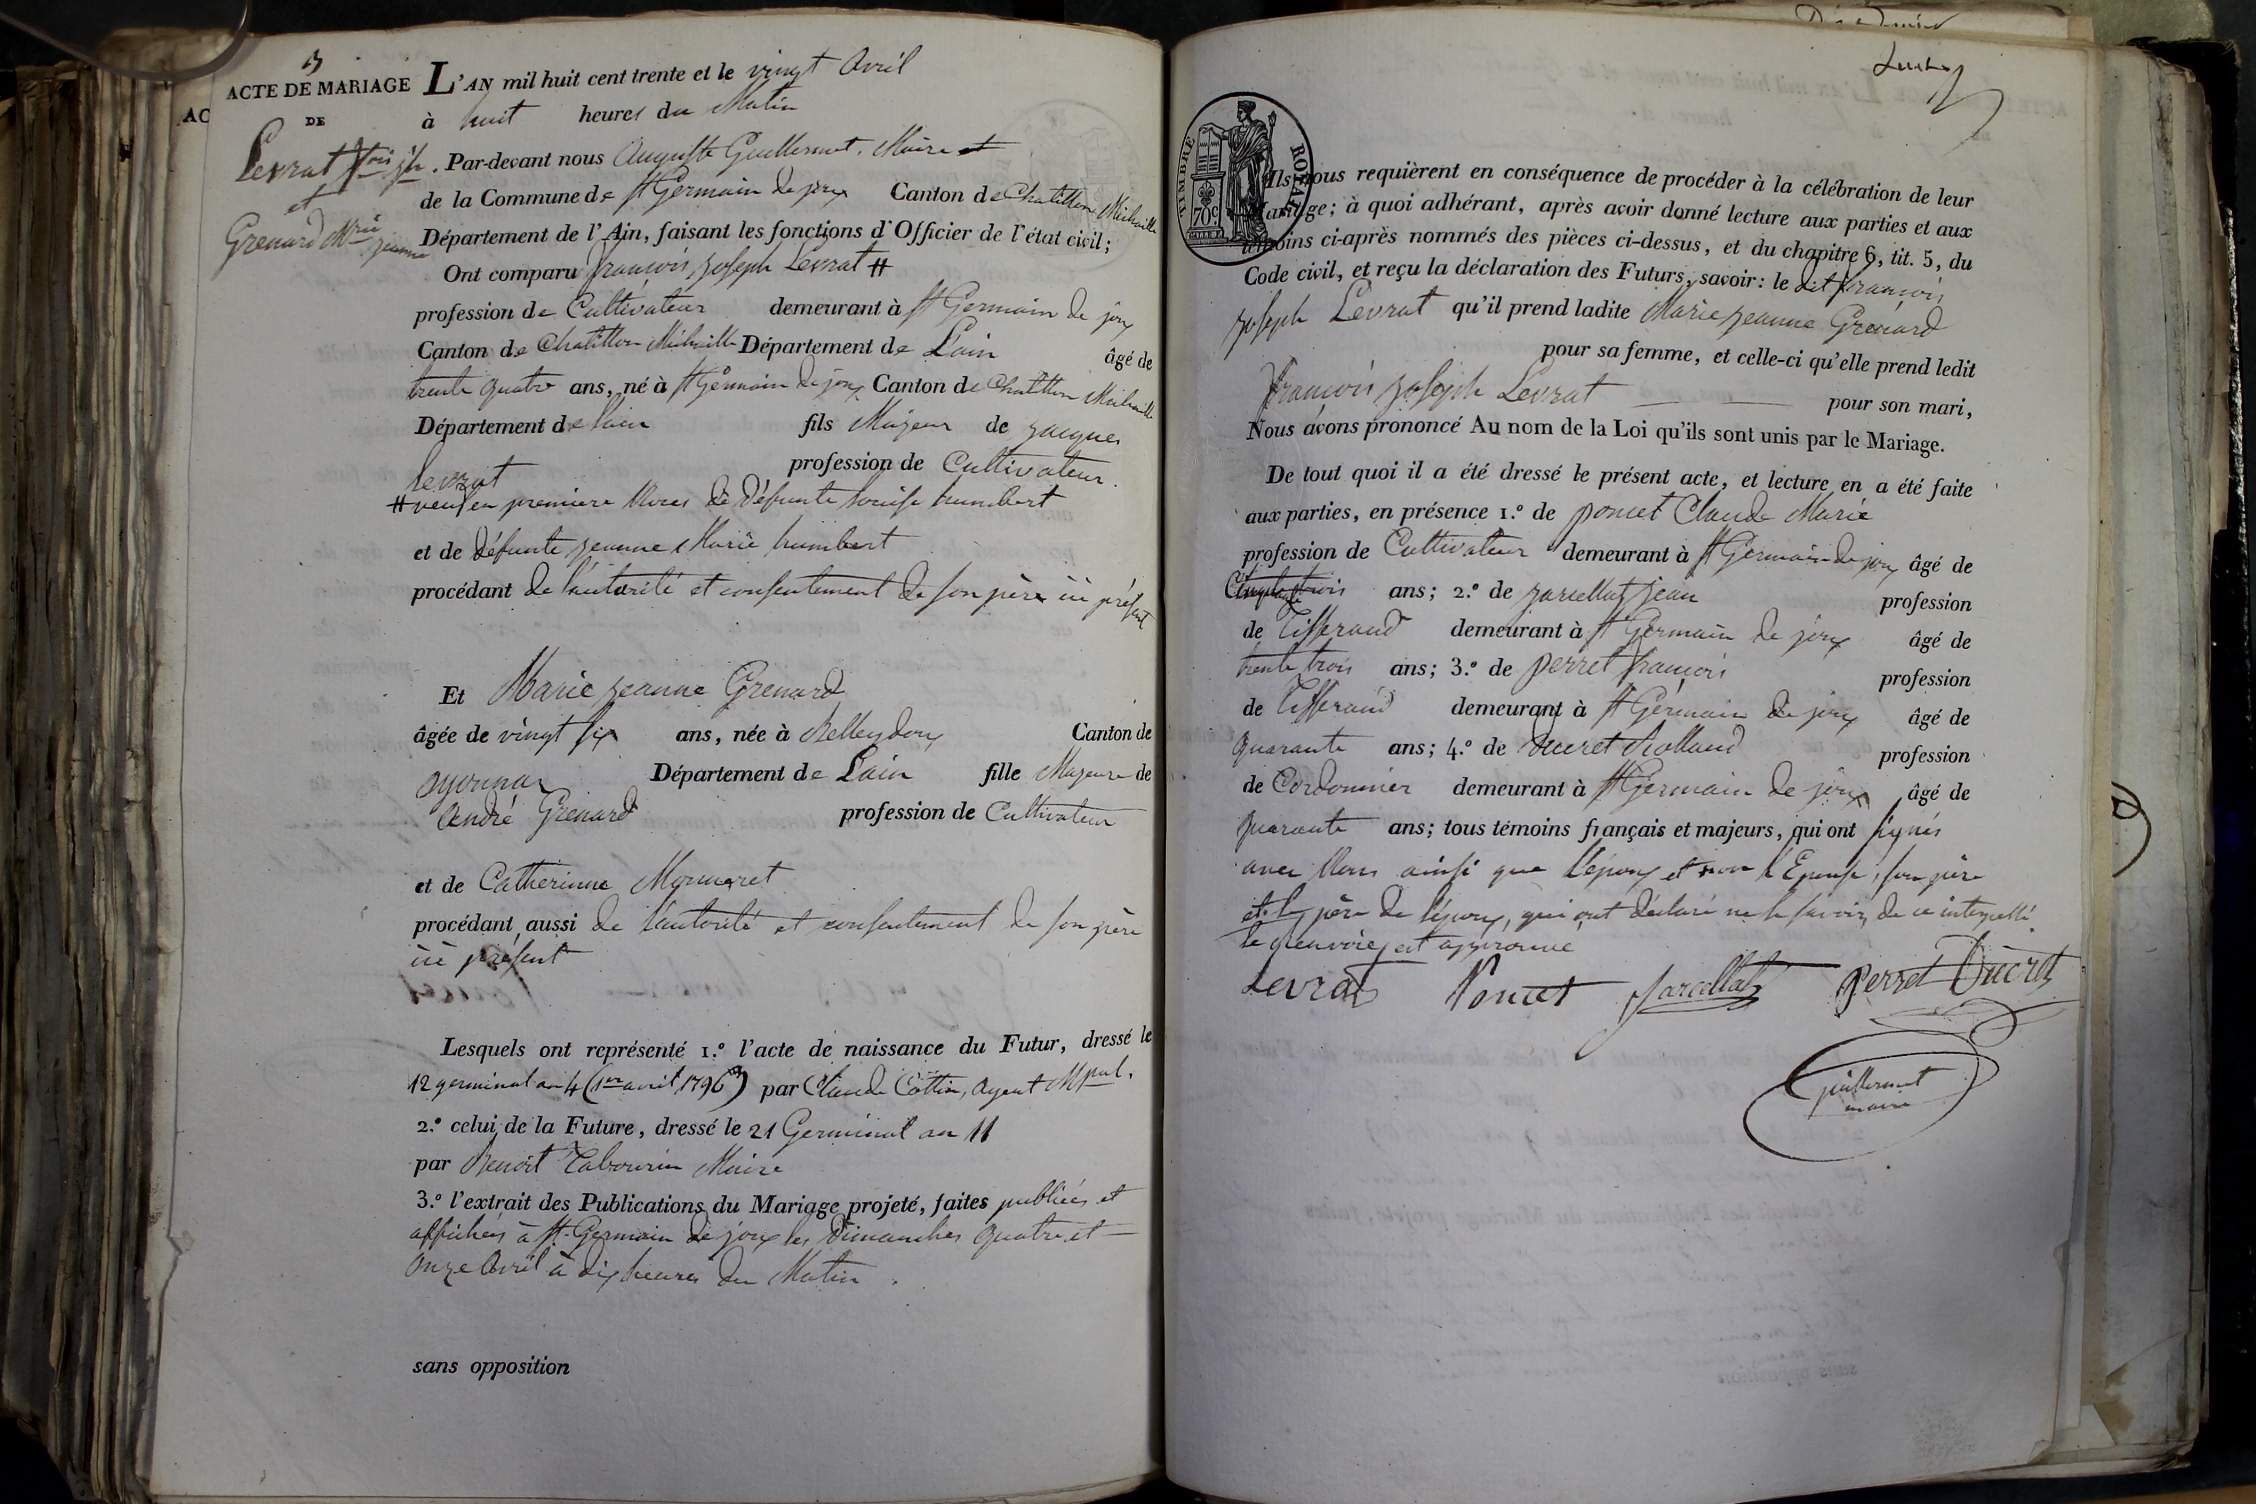 13
ACTE DE MARIAGE
DE
Levrat fois jh.
et
Grenard Mrie
jeanne
AC
L'AN mil huit cent trente et le vingt avril
à huit heures du Matin
Par-devant nous Auguste Guillermet. Maire et
de la Commune de St Germain de joux Canton de Chatillon Michaille
Département de l'Ain, faisant les fonctions d'Officier de l'état civil;
Ont comparu françois joseph Levrat #
profession de Cultivateur demeurant à St Germain de joux
Canton de Chatillon Michaille Département de L'ain âgé de
trente quatre ans, né à St Germain de joux Canton de Chatillon Michaille
Département de l'ain fils Majeur de jacques
levrat profession de Cultivateur.
# veuf en premiere Noces de Défunte louise humbert
et de Défunte jeanne Marie humbert
procédant de l'autorité et consentement de son père ici présent
Et Marie jeanne Grenard
âgée de vingt six ans, née à Belleydoux Canton de
oyonnax Département de L'ain fille Majeure de
André Grenard profession de Cultivateur
et de Catherinne Monneret
procédant aussi de l'autorité et consentement de son père
ici présent
Lesquels ont représenté 1.º l'acte de naissance du Futur, dressé le
12 germinal an 4 (1er avril 1796) par Claude Cottin, agent Mpal.
2.º celui de la Future, dressé le 21 Germinal an 11
par Benoit Tabourin Maire
3.º l'extrait des Publications du Mariage projeté, faites publiées et
affichées à St. Germain de joux les Dimanches quatre et
onze Avril à dix heures du Matin.
sans opposition
TIMBRE ROYAL
70c
Ils nous requièrent en conséquence de procéder à la célébration de leur
Mariage; à quoi adhérant, après avoir donné lecture aux parties et aux
témoins ci-après nommés des pièces ci-dessus, et du chapitre 6, tit. 5, du
Code civil, et reçu la déclaration des Futurs, savoir: le dit françois
joseph Levrat qu'il prend ladite Marie jeanne Grenard
pour sa femme, et celle-ci qu'elle prend ledit
françois joseph Levrat pour son mari,
Nous avons prononcé Au nom de la Loi qu'ils sont unis par le Mariage.
De tout quoi il a été dressé le présent acte, et lecture en a été faite
aux parties, en présence 1.º de poncet Claude Marie
profession de Cultivateur demeurant à St Germain de joux âgé de
trois ans; 2.º de jarcellat jean profession
de Tisserand demeurant à St Germain de joux âgé de
trente trois ans; 3.º de perret françois profession
de Tisserand demeurant à St Germain de joux âgé de
quarante ans; 4.º de Ducret Rolland profession
de Cordonnier demeurant à St Germain de joux âgé de
quarante ans; tous témoins français et majeurs, qui ont signés
avec Nous ainsi que L'époux et non l'Epouse, son père
et le père de l'époux, qui ont déclaré ne le savoir, de ce interpellé.
le grenvoie est approuvé
Levrat Poncet Jarcellat perret Ducret
guillermet
maire